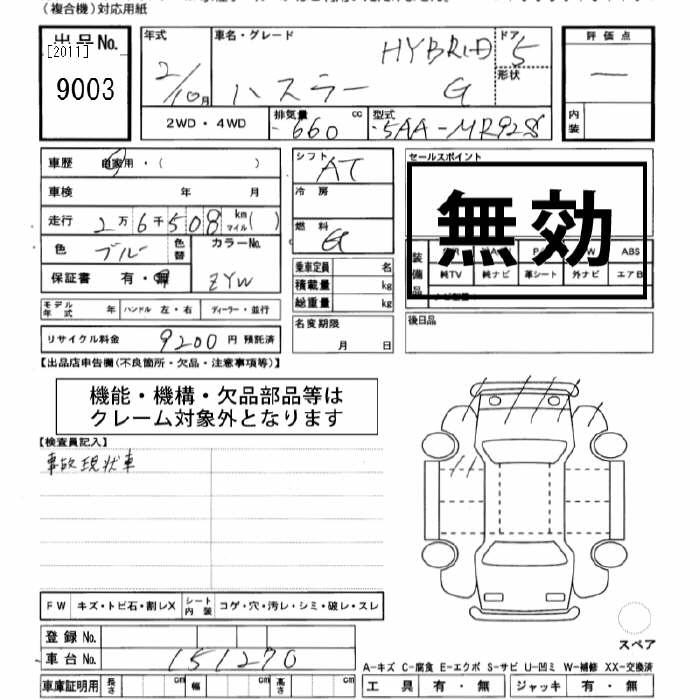 (複合機)対応用紙
出品No.
[2011]
9003
年式
2/10月
車名・グレード
HYBRID
ハスラー G
ドア
5
形状
評価点
—
内装
2WD・4WD
排気量 660 cc
型式 5AA-MR92S
車歴 自家用・( )
車検 年 月
走行 2万6千508 km マイル( )
色 ブルー 色替
カラーNo. ZYW
保証書 有・無
モデル年式 年 ハンドル 左・右 ディーラー・並行
リサイクル料金 9200 円 預託済
シフト AT
冷房
燃料 G
乗車定員 名
積載量 kg
総重量 kg
名変期限
月 日
セールスポイント
無効
装備品
ABS
純TV 純ナビ 革シート 外ナビ エアB
後日品
【出品店申告欄(不良箇所・欠品・注意事項等)】
機能・機構・欠品部品等は
クレーム対象外となります
【検査員記入】
事故現状車
FW キズ・トビ石・割レX シート内装 コゲ・穴・汚レ・シミ・破レ・スレ
登録No.
車台No. 151270
車庫証明用 長さ cm 幅 cm 高さ cm
スペア
A-キズ C-腐食 E-エクボ S-サビ U-凹ミ W-補修 XX-交換済
工具 有・無 ジャッキ 有・無